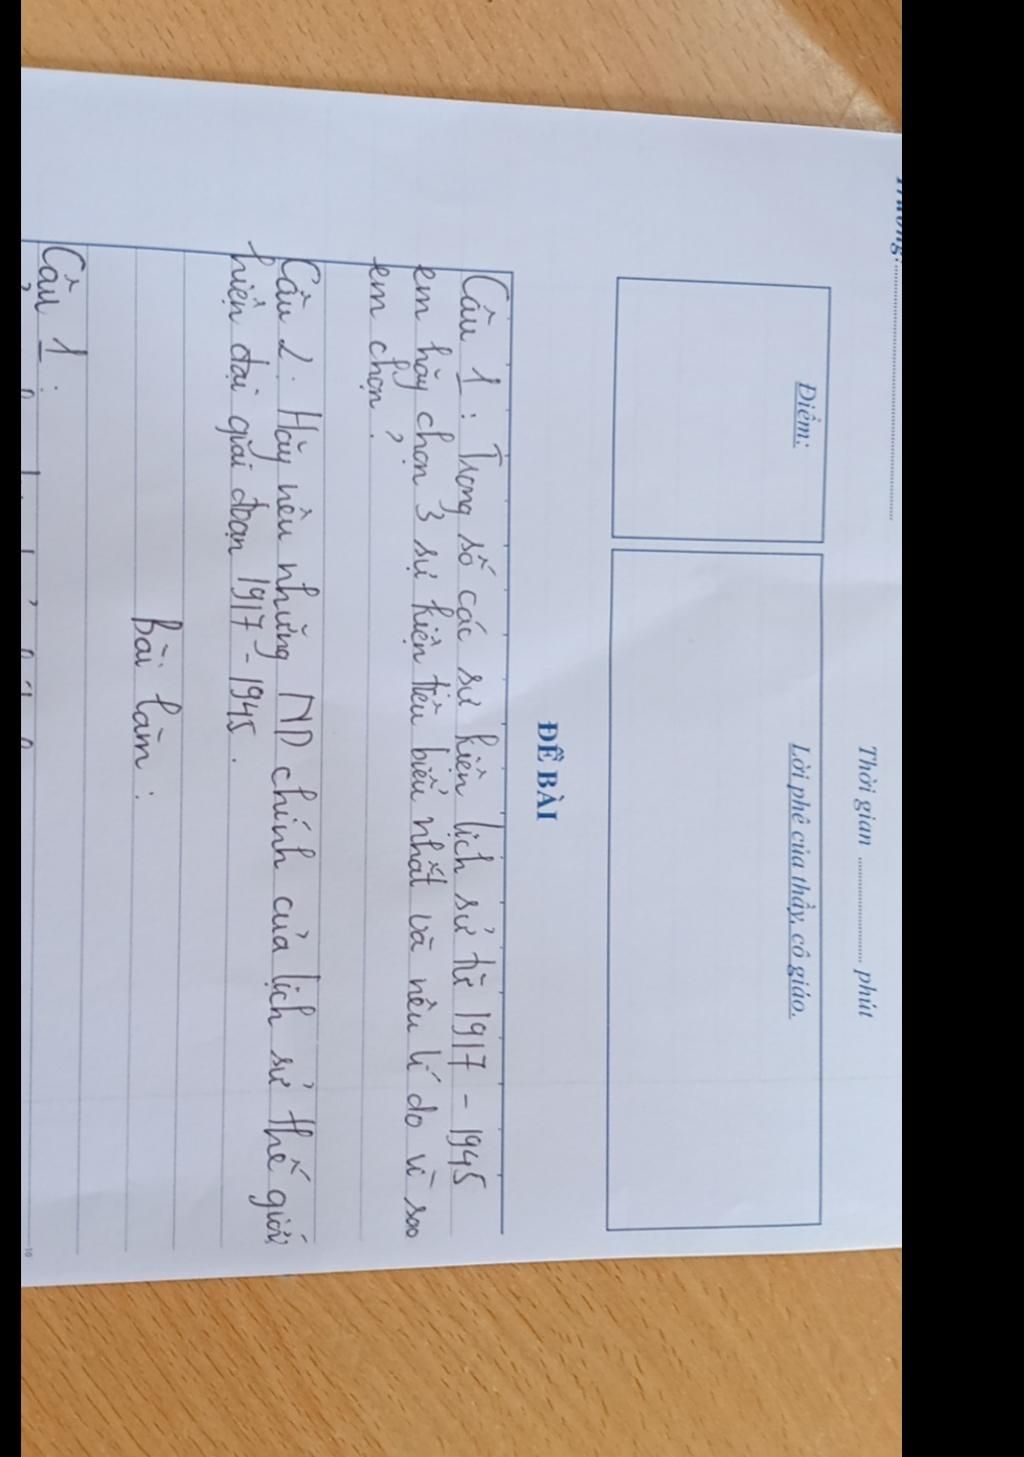 Trường:
Thời gian .................... phút
Điểm:
Lời phê của thầy, cô giáo.
ĐỀ BÀI
Câu 1: Trong số các sự kiện lịch sử từ 1917 - 1945
em hãy chọn 3 sự kiện tiêu biểu nhất và nêu lí do vì sao
em chọn?
Câu 2: Hãy nêu những ND chính của lịch sử thế giới
hiện đại giai đoạn 1917 - 1945.
Bài làm:
Câu 1: